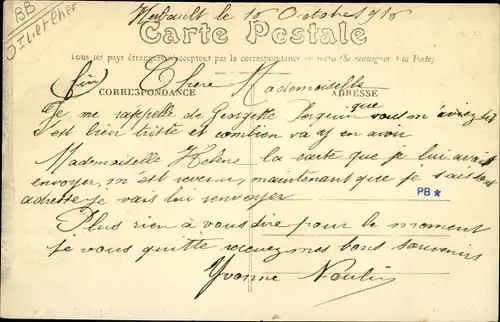 BB
OILetLher
Herbault le 18 Octobre 1918
Carte Postale
Tous les pays étrangers n'acceptent pas la correspondance au recto (Se renseigner à la Poste)
(fin) Chère Mademoiselle
CORRESPONDANCE ADRESSE
Je me rappelle de Georgette que vous m'aviez dit
c'est bien triste et combien va y en avoir
Mademoiselle Helene la carte que je lui avait
envoyer, m'est revenu, maintenant que je sais son
adresse je vais lui renvoyer
PB★
Plus rien à vous dire pour le moment
je vous quitte recevez mes bons souvenirs
Yvonne